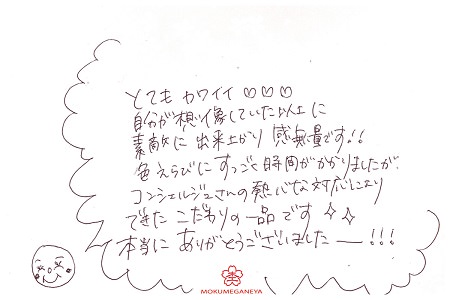 とても カワイイ ♡♡♡
自分が想像していた以上に
素敵に出来上がり 感無量です!!
色えらびにすっごく時間がかかりましたが、
コンシェルジュさんの熱心な対応により
できた こだわりの一品です ✧✧
本当に ありがとうございましたー!!!
MOKUMEGANEYA